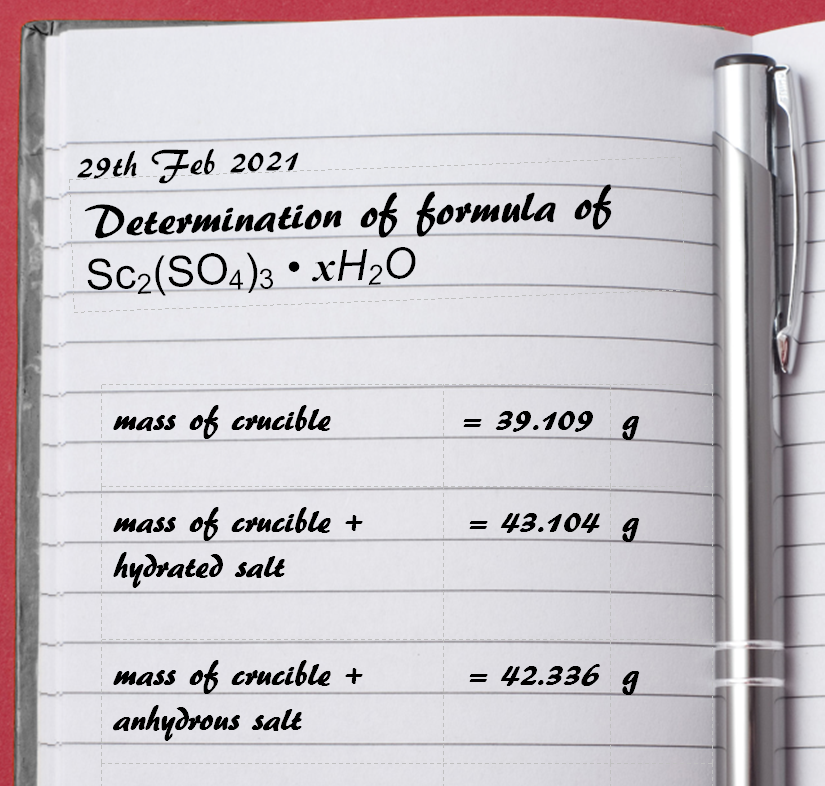 29th Feb 2021
Determination of formula of
Sc₂(SO₄)₃ • xH₂O
mass of crucible = 39.109 g
mass of crucible + = 43.104 g
hydrated salt
mass of crucible + = 42.336 g
anhydrous salt